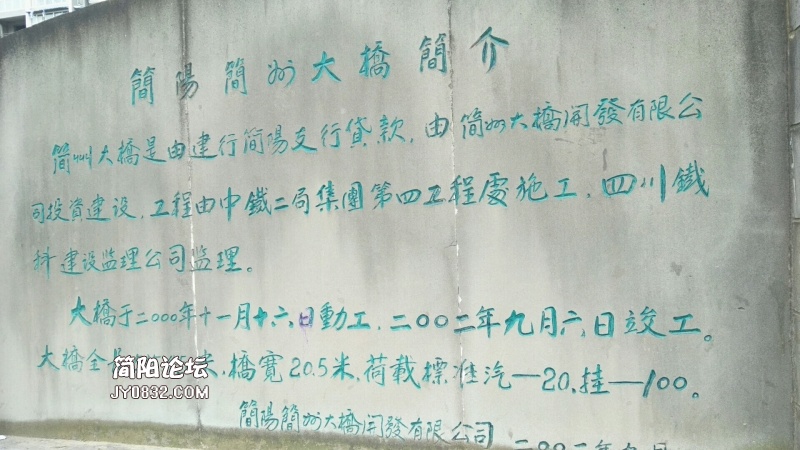 簡陽簡州大橋簡介
簡州大橋是由建行简陽支行貸款，由简州大橋開發有限公
司投資建设，工程由中鐵二局集團第四工程處施工，四川鐵
科建设监理公司监理。
大橋于二000年十一月十六日動工，二00二年九月六日竣工。
大橋全 米，橋寬20.5米，荷载標准汽—20，挂—100。
簡陽簡州大橋開發有限公司 二00二年九月
简阳论坛
JY0832.COM